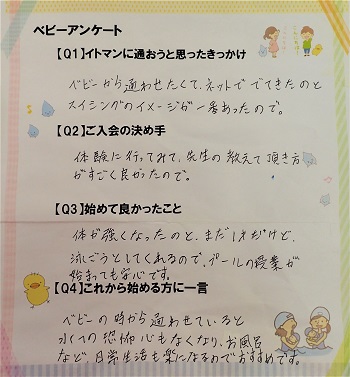 ベビーアンケート
【Q1】イトマンに通おうと思ったきっかけ
ベビーから通わせたくて、ネットででてきたのと
スイミングのイメージが一番あったので。
【Q2】ご入会の決め手
体験に行ってみて、先生の教えて頂き方
がすごく良かったので。
【Q3】始めて良かったこと
体が強くなったのと、まだ1才だけど、
泳ごうとしてくれるので、プールの授業が
始まっても安心です。
【Q4】これから始める方に一言
ベビーの時から通わせていると
水への恐怖心もなくなり、お風呂
など、日常生活も楽になるのでおすすめです。